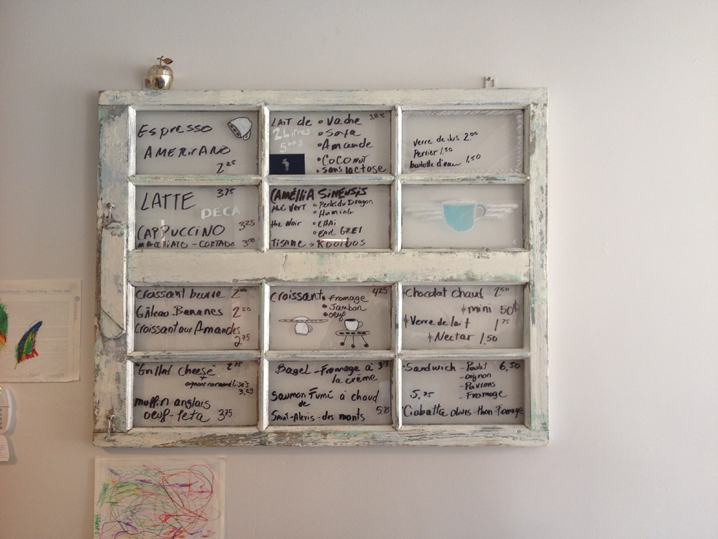 Espresso
AMERICANO
2.25
LAIT de • Vache
2 Litres • Soya
• Amande
• COCONUT
• sans lactose
Verre de jus 2.00
Perrier 1.50
bouteille d'eau 1.50
LATTE 3.75
DECA
CAPPUCCINO 3.25
MACCHIATO - CORTADO
CAMÉLLIA SINENSIS
THÉ VERT • Perle du Dragon
Thé Noir • CHAi
• EARL GREY
TISANE > ROOIBOS
Croissant beurre
Gâteau Bananes 2.50
Croissant aux Amandes
2.75
Croissant • fromage 4.25
• Jambon
• oeuf
Chocolat chaud 2.50
+ mini 50¢
+ Verre de lait 1.75
+ Nectar 1.50
Grilled cheese
+
muffin anglais
oeuf - feta 3.75
Bagel - Fromage à
la crème
Saumon Fumé à chaud
de
Saint-Alexis-des monts
Sandwich - Poulet 6.50
- oignon
- Poivrons
- Fromage
5.75
Ciabatta olives - thon - fromage